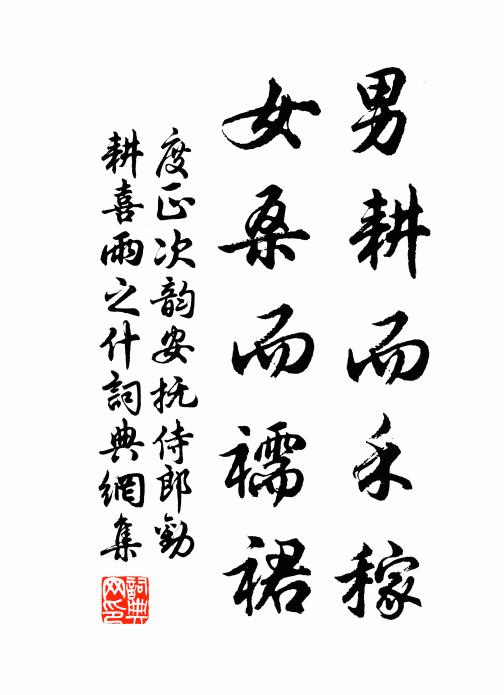 男耕而禾稼
女桑而襦裙
度正次韵安抚侍郎劝
耕喜雨之什詞典網集
詞典
网印